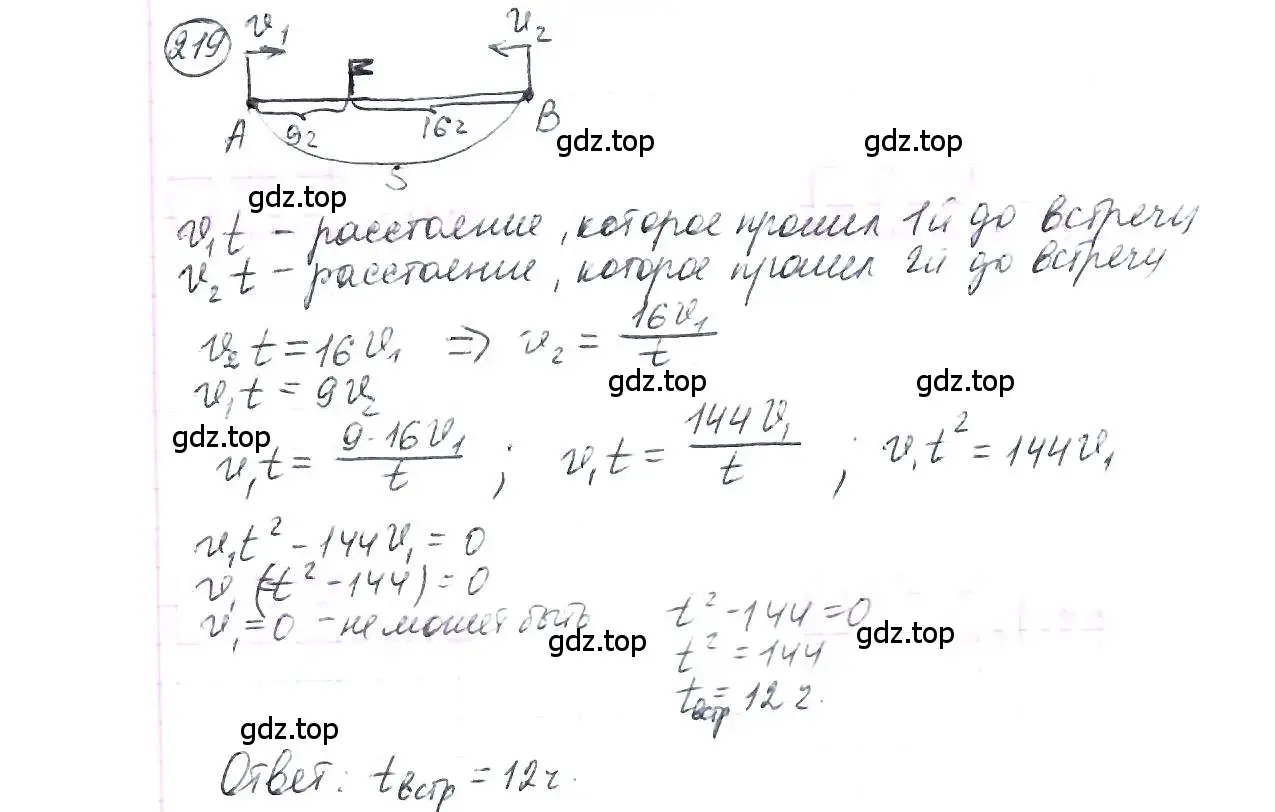 219 v₁ v₂
A 9ч 16ч B
S
gdz.top gdz.top
gdz.top
v₁t – расстояние, которое прошел 1й до встречи
v₂t – расстояние, которое прошел 2й до встречи
v₂t = 16v₁ ⇒ v₂ = 16v₁/t
gdz.top gdz.top
v₁t = 9v₂
gdz.top
v₁t = 9·16v₁/t ; v₁t = 144v₁/t ; v₁t² = 144v₁
v₁t² – 144v₁ = 0
v₁(t² – 144) = 0
v₁ = 0 – не может быть t² – 144 = 0
gdz.top gdz.top
t² = 144
tвстр = 12 ч.
gdz.top
Ответ: tвстр = 12ч.